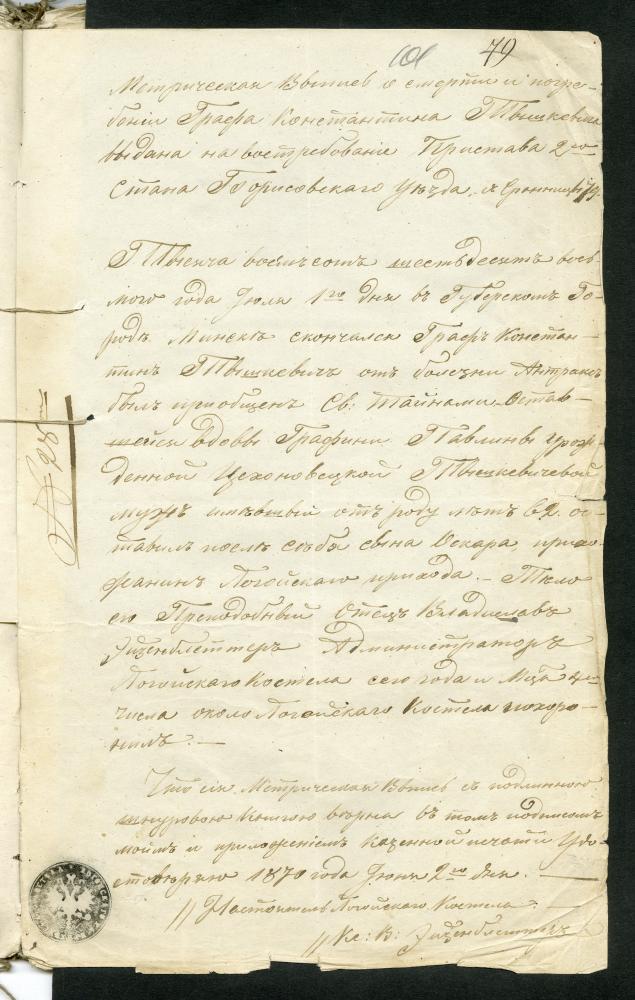 79
Метрическая Выпись о смерти и погре-
бенiи Графа Константина Тышкевича
выдана на востребованiе Пристава 2го
Стана Борисовскаго Уѣзда.
Тысяча восемьсотъ шестьдесятъ вось-
мого года Iюля 1го дня въ Губерскомъ Го-
родѣ Минскѣ скончался Графъ Констан-
тинъ Тышкевичъ отъ болезни Антраксъ
былъ прiобщенъ Св: Тайнами. Остав-
шейся вдовы Графини Павлины урож-
денной Цехоновецкой Тышкевичевой
мужъ имѣвшiй отъ роду лѣтъ 62. ос-
тавилъ послѣ себя сына Оскара прихо-
жанинъ Логойскаго прихода. — Тѣло
его Преподобный Отецъ Владиславъ
Эйзенблеттеръ Администраторъ
Логойскаго Костела сего года и Мца
числа около Логойскаго Костела похоро-
нилъ. —
Что сiя Метрическая Выпись съ подлинною
шнуровою Книгою вѣрна въ томъ подписомъ
моимъ и приложенiемъ казенной печати Удо-
стовѣряю 1870 года Iюня 2го дня. —
// Настоятель Логойскаго Костела.
// Кс: В: Эйзенблеттеръ
№ 28